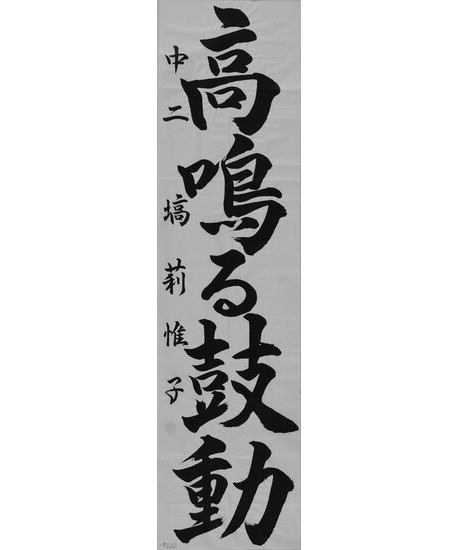 高鳴る鼓動
中二 塙莉惟子